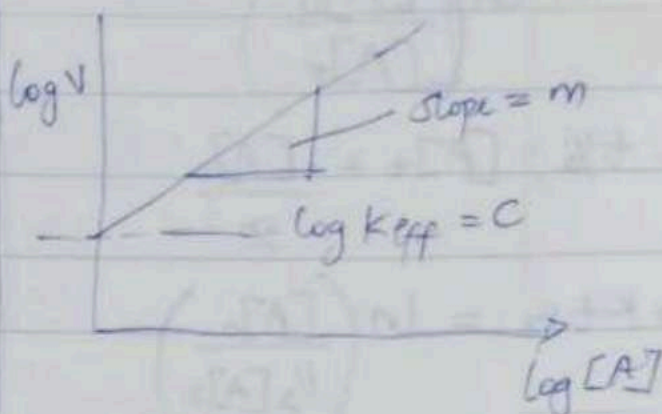 log V
slope = m
log keff = C
log [A]